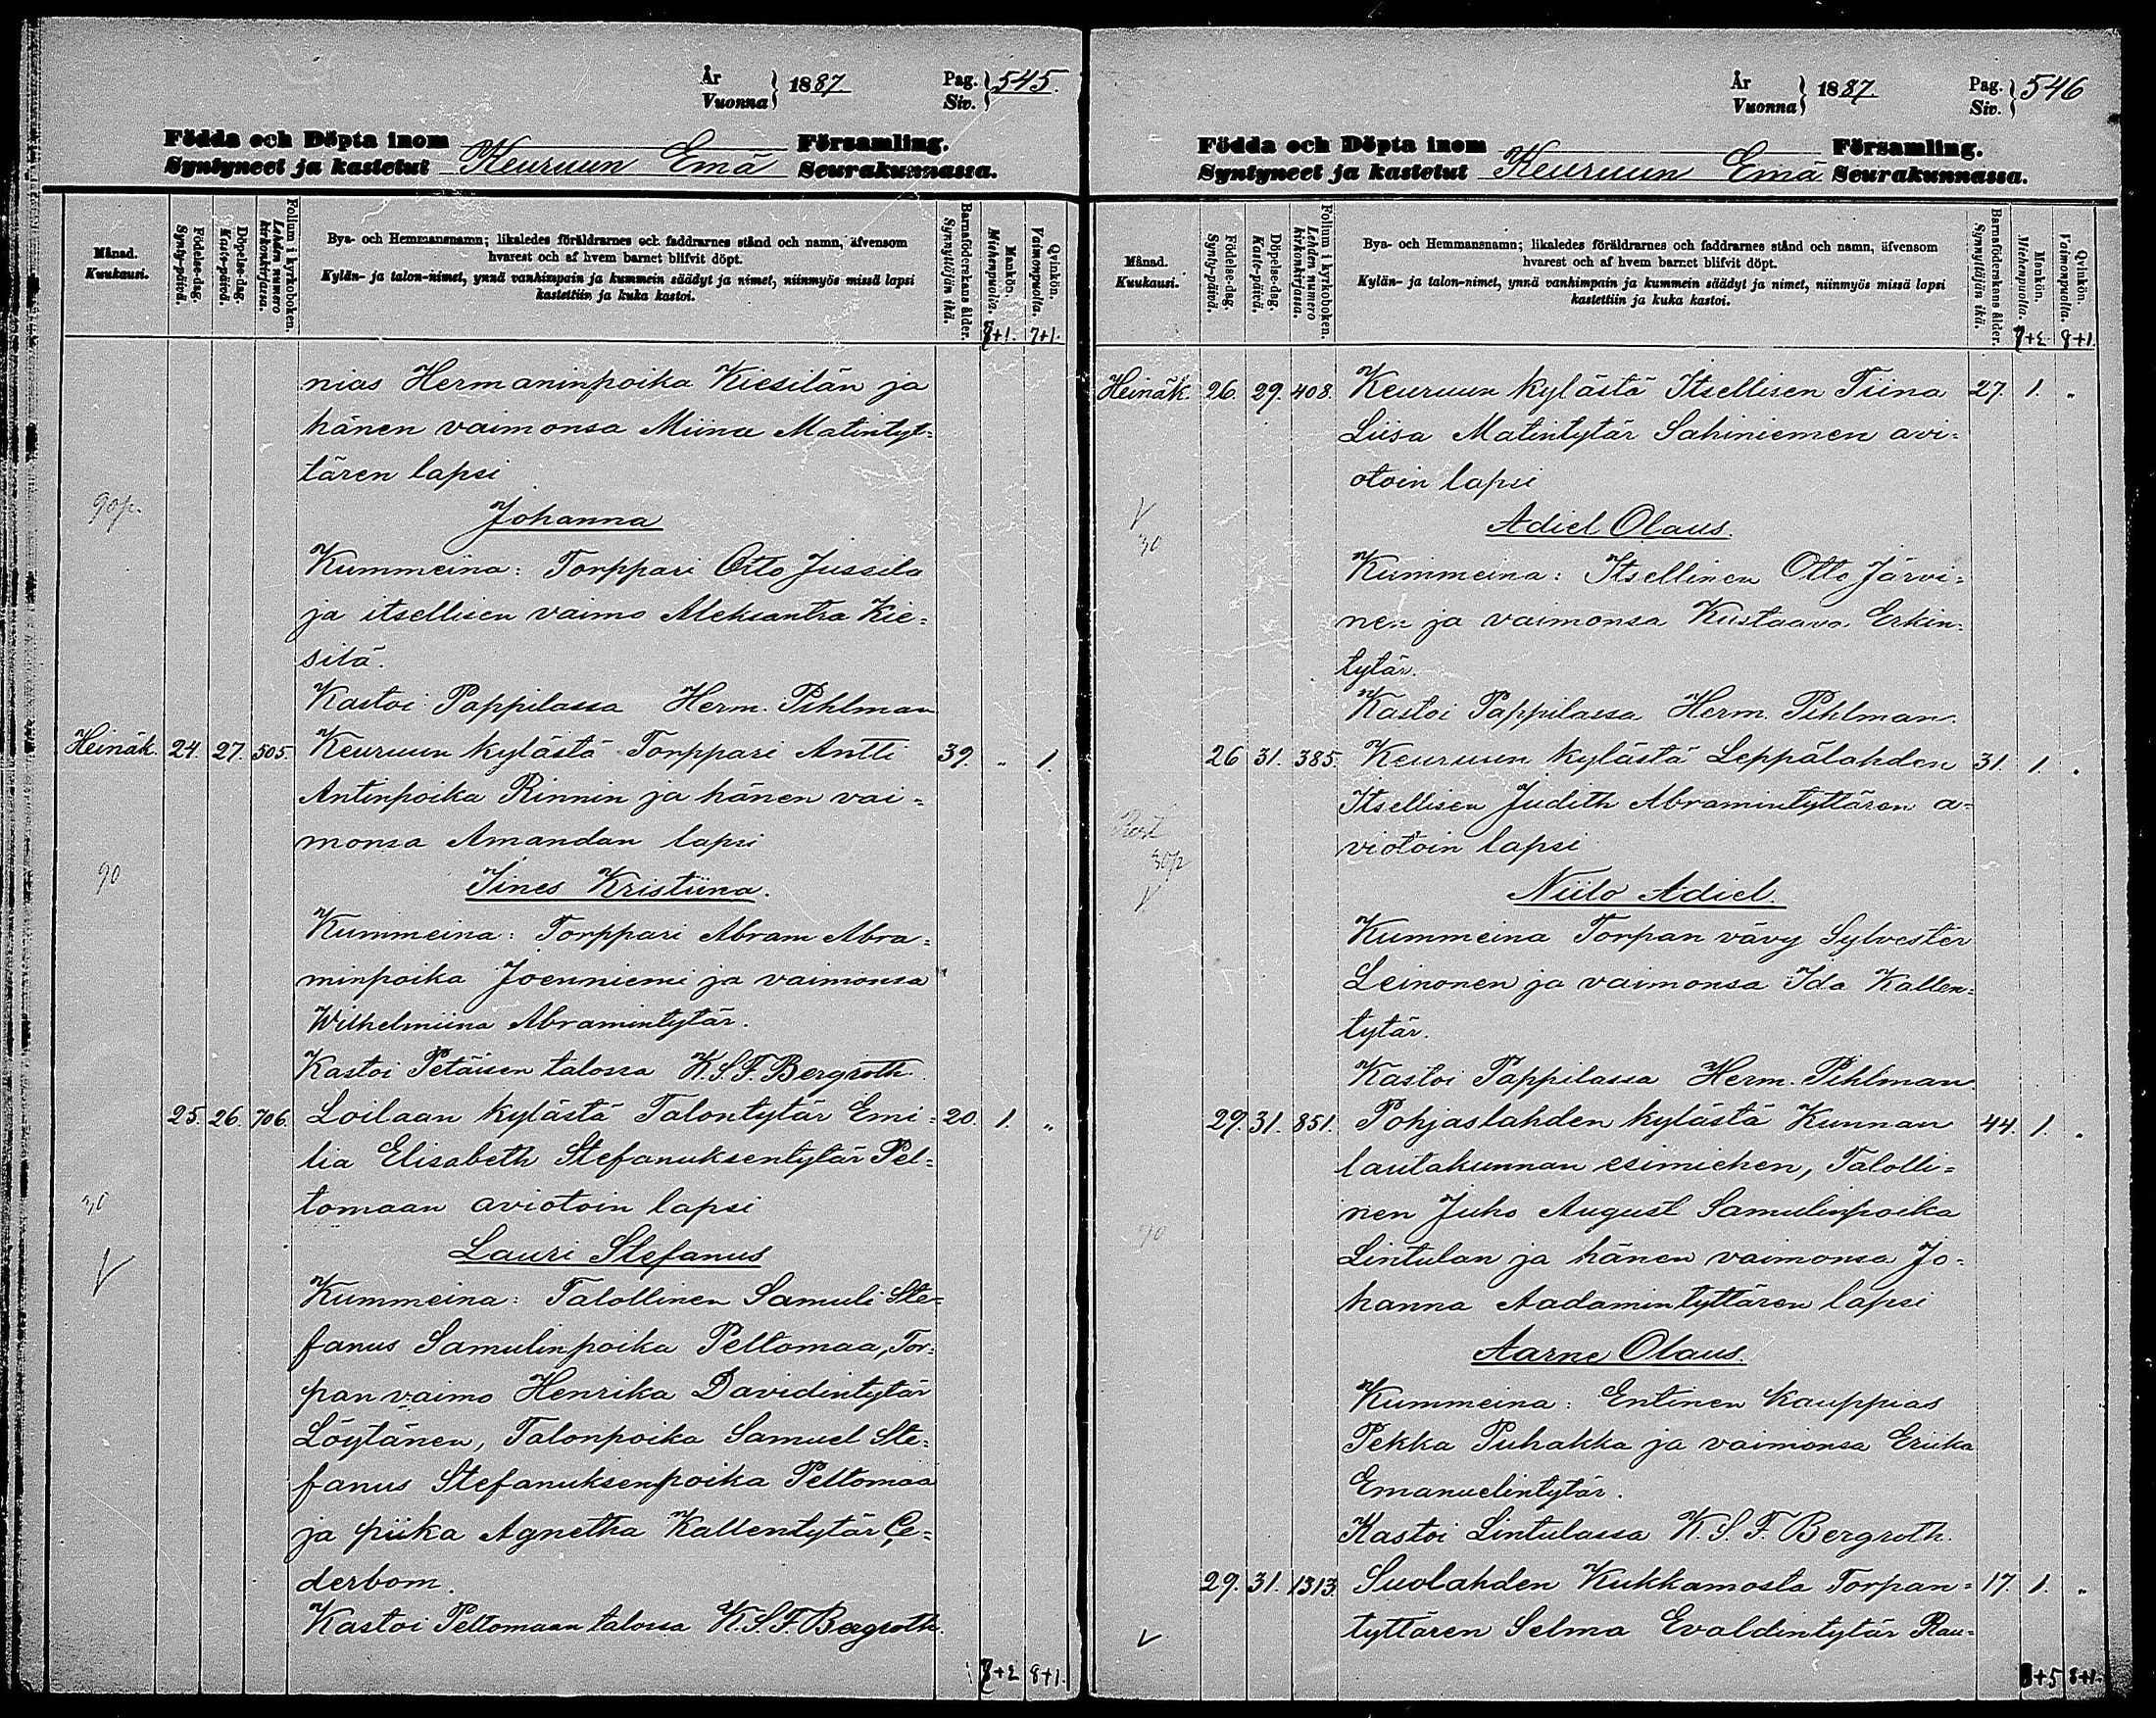 År
Vuonna } 1887
Pag.
Siv. } 545.
Födda och Döpta inom Församling.
Syntyneet ja kastetut Keuruun Emä Seurakunnassa.
Månad.
Kuukausi.
Födelse-dag.
Synty-päivä.
Döpelse-dag.
Kaste-päivä.
Folium i kyrkoboken.
Lehden numero kirkonkirjassa.
Bya- och Hemmansnamn; likaledes föräldrarnes och faddrarnes stånd och namn, äfvensom
hvarest och af hvem barnet blifvit döpt.
Kylän- ja talon-nimet, ynnä vanhimpain ja kummein säädyt ja nimet, niinmyös missä lapsi
kastettiin ja kuka kastoi.
Barnaföderskans ålder.
Synnyttäjän ikä.
Mankön.
Miehenpuolia.
Qvinkön.
Vaimonpuolia.
7+1. 7+1.
nias Hermaninpoika Kiesilän ja
hänen vaimonsa Miina Matintyt=
tären lapsi
90p.
Johanna
Kummeina: Torppari Otto Jussila
ja itsellisen vaimo Aleksantra Kie=
silä.
Kastoi Pappilassa Herm. Pihlman
Heinäk. 24. 27. 505. Keuruun kylästä Torppari Antti 39. " 1.
Antinpoika Rinnin ja hänen vai=
monsa Amandan lapsi
90
Iines Kristiina.
Kummeina: Torppari Abram Abra=
minpoika Joenniemi ja vaimonsa
Wilhelmiina Abramintytär.
Kastoi Petäisen talossa K.S.F. Bergroth.
25. 26. 706. Loilaan kylästä Talontytär Emi= 20. 1. "
lia Elisabeth Stefanuksentytär Pel=
30 tomaan aviotoin lapsi
V Lauri Stefanus
Kummeina: Talollinen Samuli Ste=
fanus Samulinpoika Peltomaa, Tor=
pan vaimo Henrika Davidintytär
Löytänen, Talonpoika Samuel Ste=
fanus Stefanuksenpoika Peltomaa
ja piika Agnetha Kallentytär Ce=
derbom.
Kastoi Peltomaan talossa K.S.F. Bergroth.
7+2 8+1.
År
Vuonna } 1887.
Pag.
Siv. } 546
Födda och Döpta inom Församling.
Syntyneet ja kastetut Keuruun Emä Seurakunnassa.
Månad.
Kuukausi.
Födelse-dag.
Synty-päivä.
Döpelse-dag.
Kaste-päivä.
Folium i kyrkoboken.
Lehden numero kirkonkirjassa.
Bya- och Hemmansnamn; likaledes föräldrarnes och faddrarnes stånd och namn, äfvensom
hvarest och af hvem barnet blifvit döpt.
Kylän- ja talon-nimet, ynnä vanhimpain ja kummein säädyt ja nimet, niinmyös missä lapsi
kastettiin ja kuka kastoi.
Barnaföderskans ålder.
Synnyttäjän ikä.
Mankön.
Miehenpuolia.
Qvinkön.
Vaimonpuolia.
7+2. 8+1.
Heinäk. 26. 29. 408. Keuruun kylästä Itsellisen Tiina 27. 1. "
Liisa Matintytär Sahiniemen avi=
otoin lapsi
V Adiel Olaus.
30
Kummeina: Itsellinen Otto Järvi=
nen ja vaimonsa Kustaava Erkin=
tytär.
Kastoi Pappilassa Herm. Pihlman.
26 31. 385. Keuruun kylästä Leppälahden 31. 1. "
Itsellisen Judith Abramintyttären a=
viotoin lapsi
30p
V Niilo Adiel.
Kummeina Torpan vävy Sylvester
Leinonen ja vaimonsa Ida Kallen=
tytär.
Kastoi Pappilassa Herm. Pihlman
29. 31. 851. Pohjaslahden kylästä Kunnan 44. 1. "
lautakunnan esimiehen, Talolli=
nen Juho August Samulinpoika
90 Lintulan ja hänen vaimonsa Jo=
hanna Aadamintyttären lapsi
Aarne Olaus.
Kummeina: Entinen Kauppias
Pekka Puhakka ja vaimonsa Eriika
Emanuelintytär.
Kastoi Lintulassa K.S.F. Bergroth.
29. 31. 1313. Suolahden Kukkamosta Torpan= 17. 1. "
V tyttären Selma Evaldintytär Rau=
7+5 8+1.